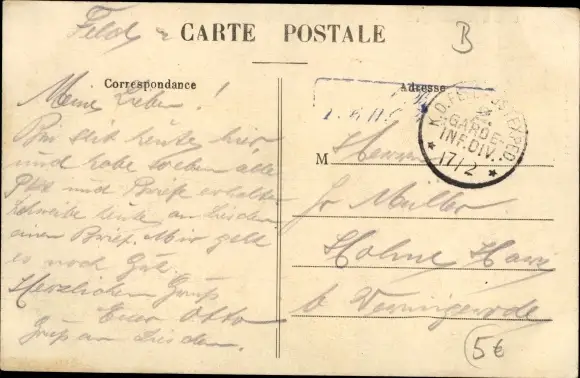 Feld
CARTE POSTALE
B
Correspondance
Adresse
Meine Lieben!
Bin seit heute hier,
und habe soeben alle
Pkt und Briefe erhalten
schreibe heute an Lieschen
einen Brief. Mir geht
es noch gut.
Herzlichen Gruß
Euer Otto
Gruß an Lieschen.
K.D. FELD-POSTEXPED.
2.
GARDE-
INF.DIV.
* 17/2 *
M Herrn
Fr Müller
Hohne Harz
b Wernigerode
5€